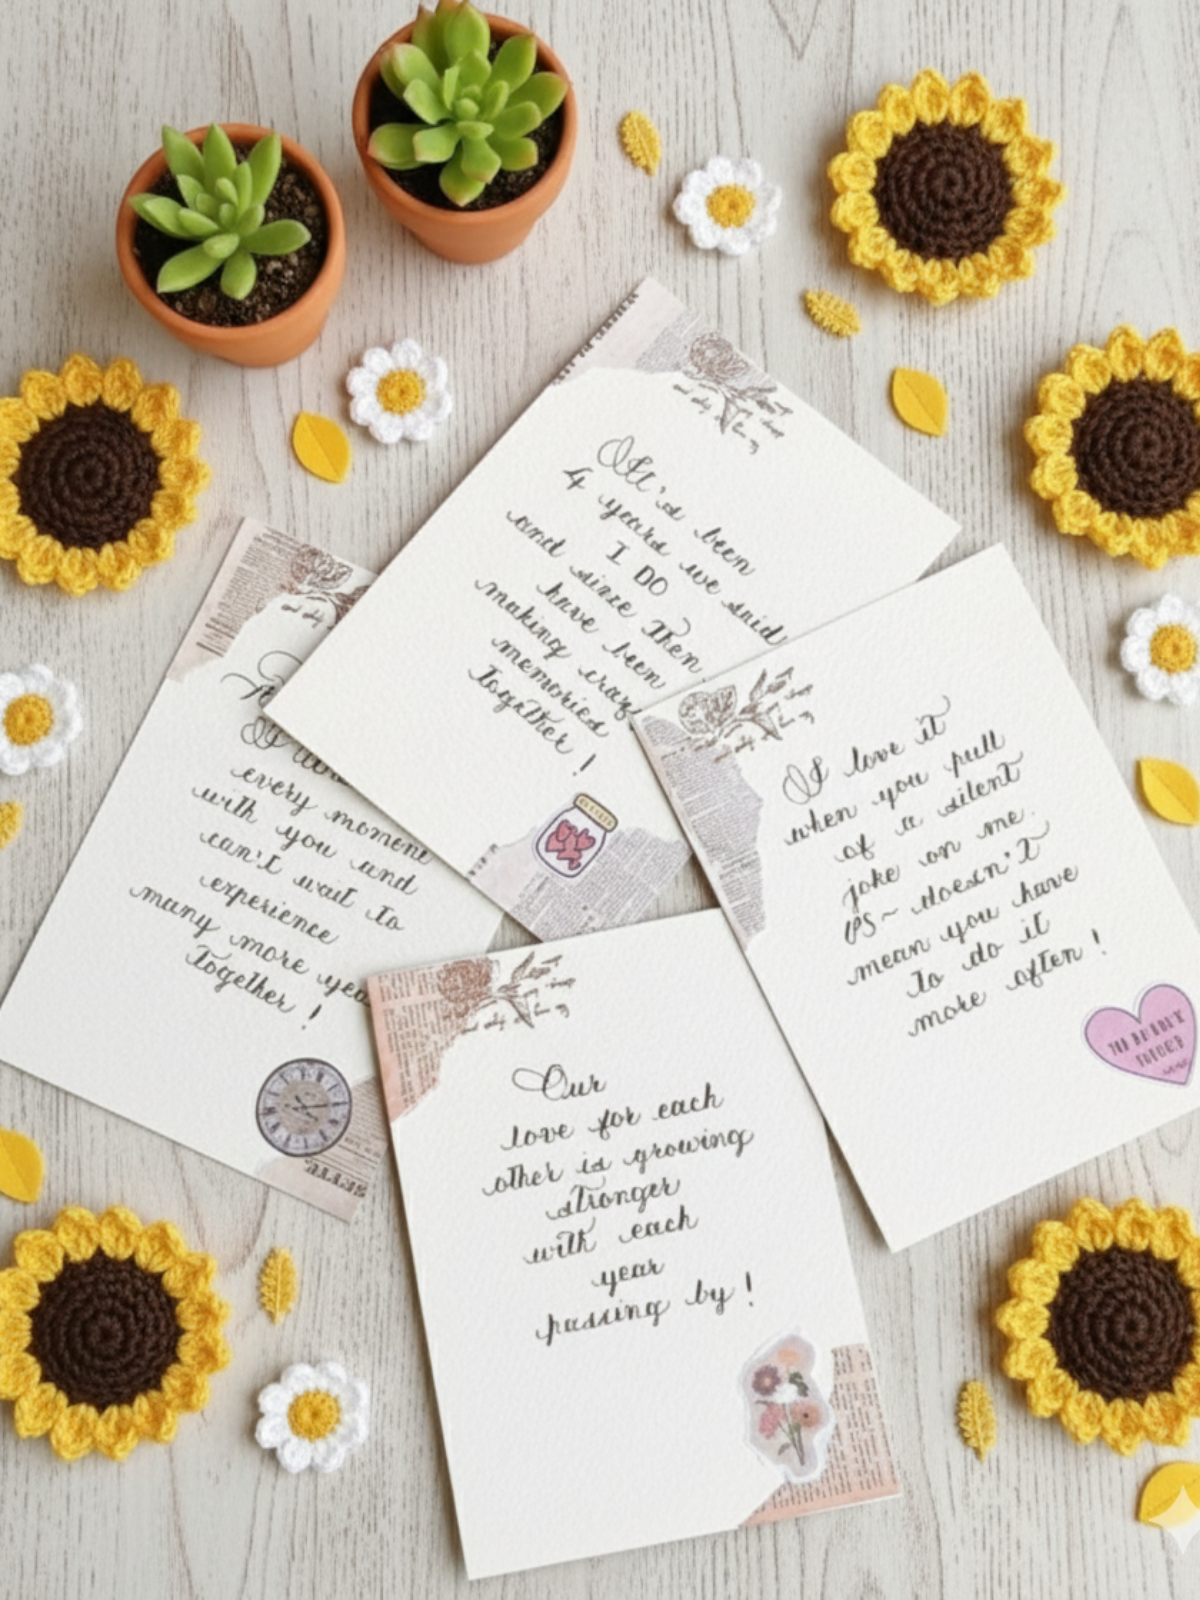 It's been
4 years we said
I DO
and since then
have been
making crazy
memories
together !
every moment
with you and
can't wait to
experience
many more
together !
I love it
when you pull
of a silent
joke on me.
PS~ doesn't
mean you have
to do it
more often !
Our
love for each
other is growing
stronger
with each
year
passing by !